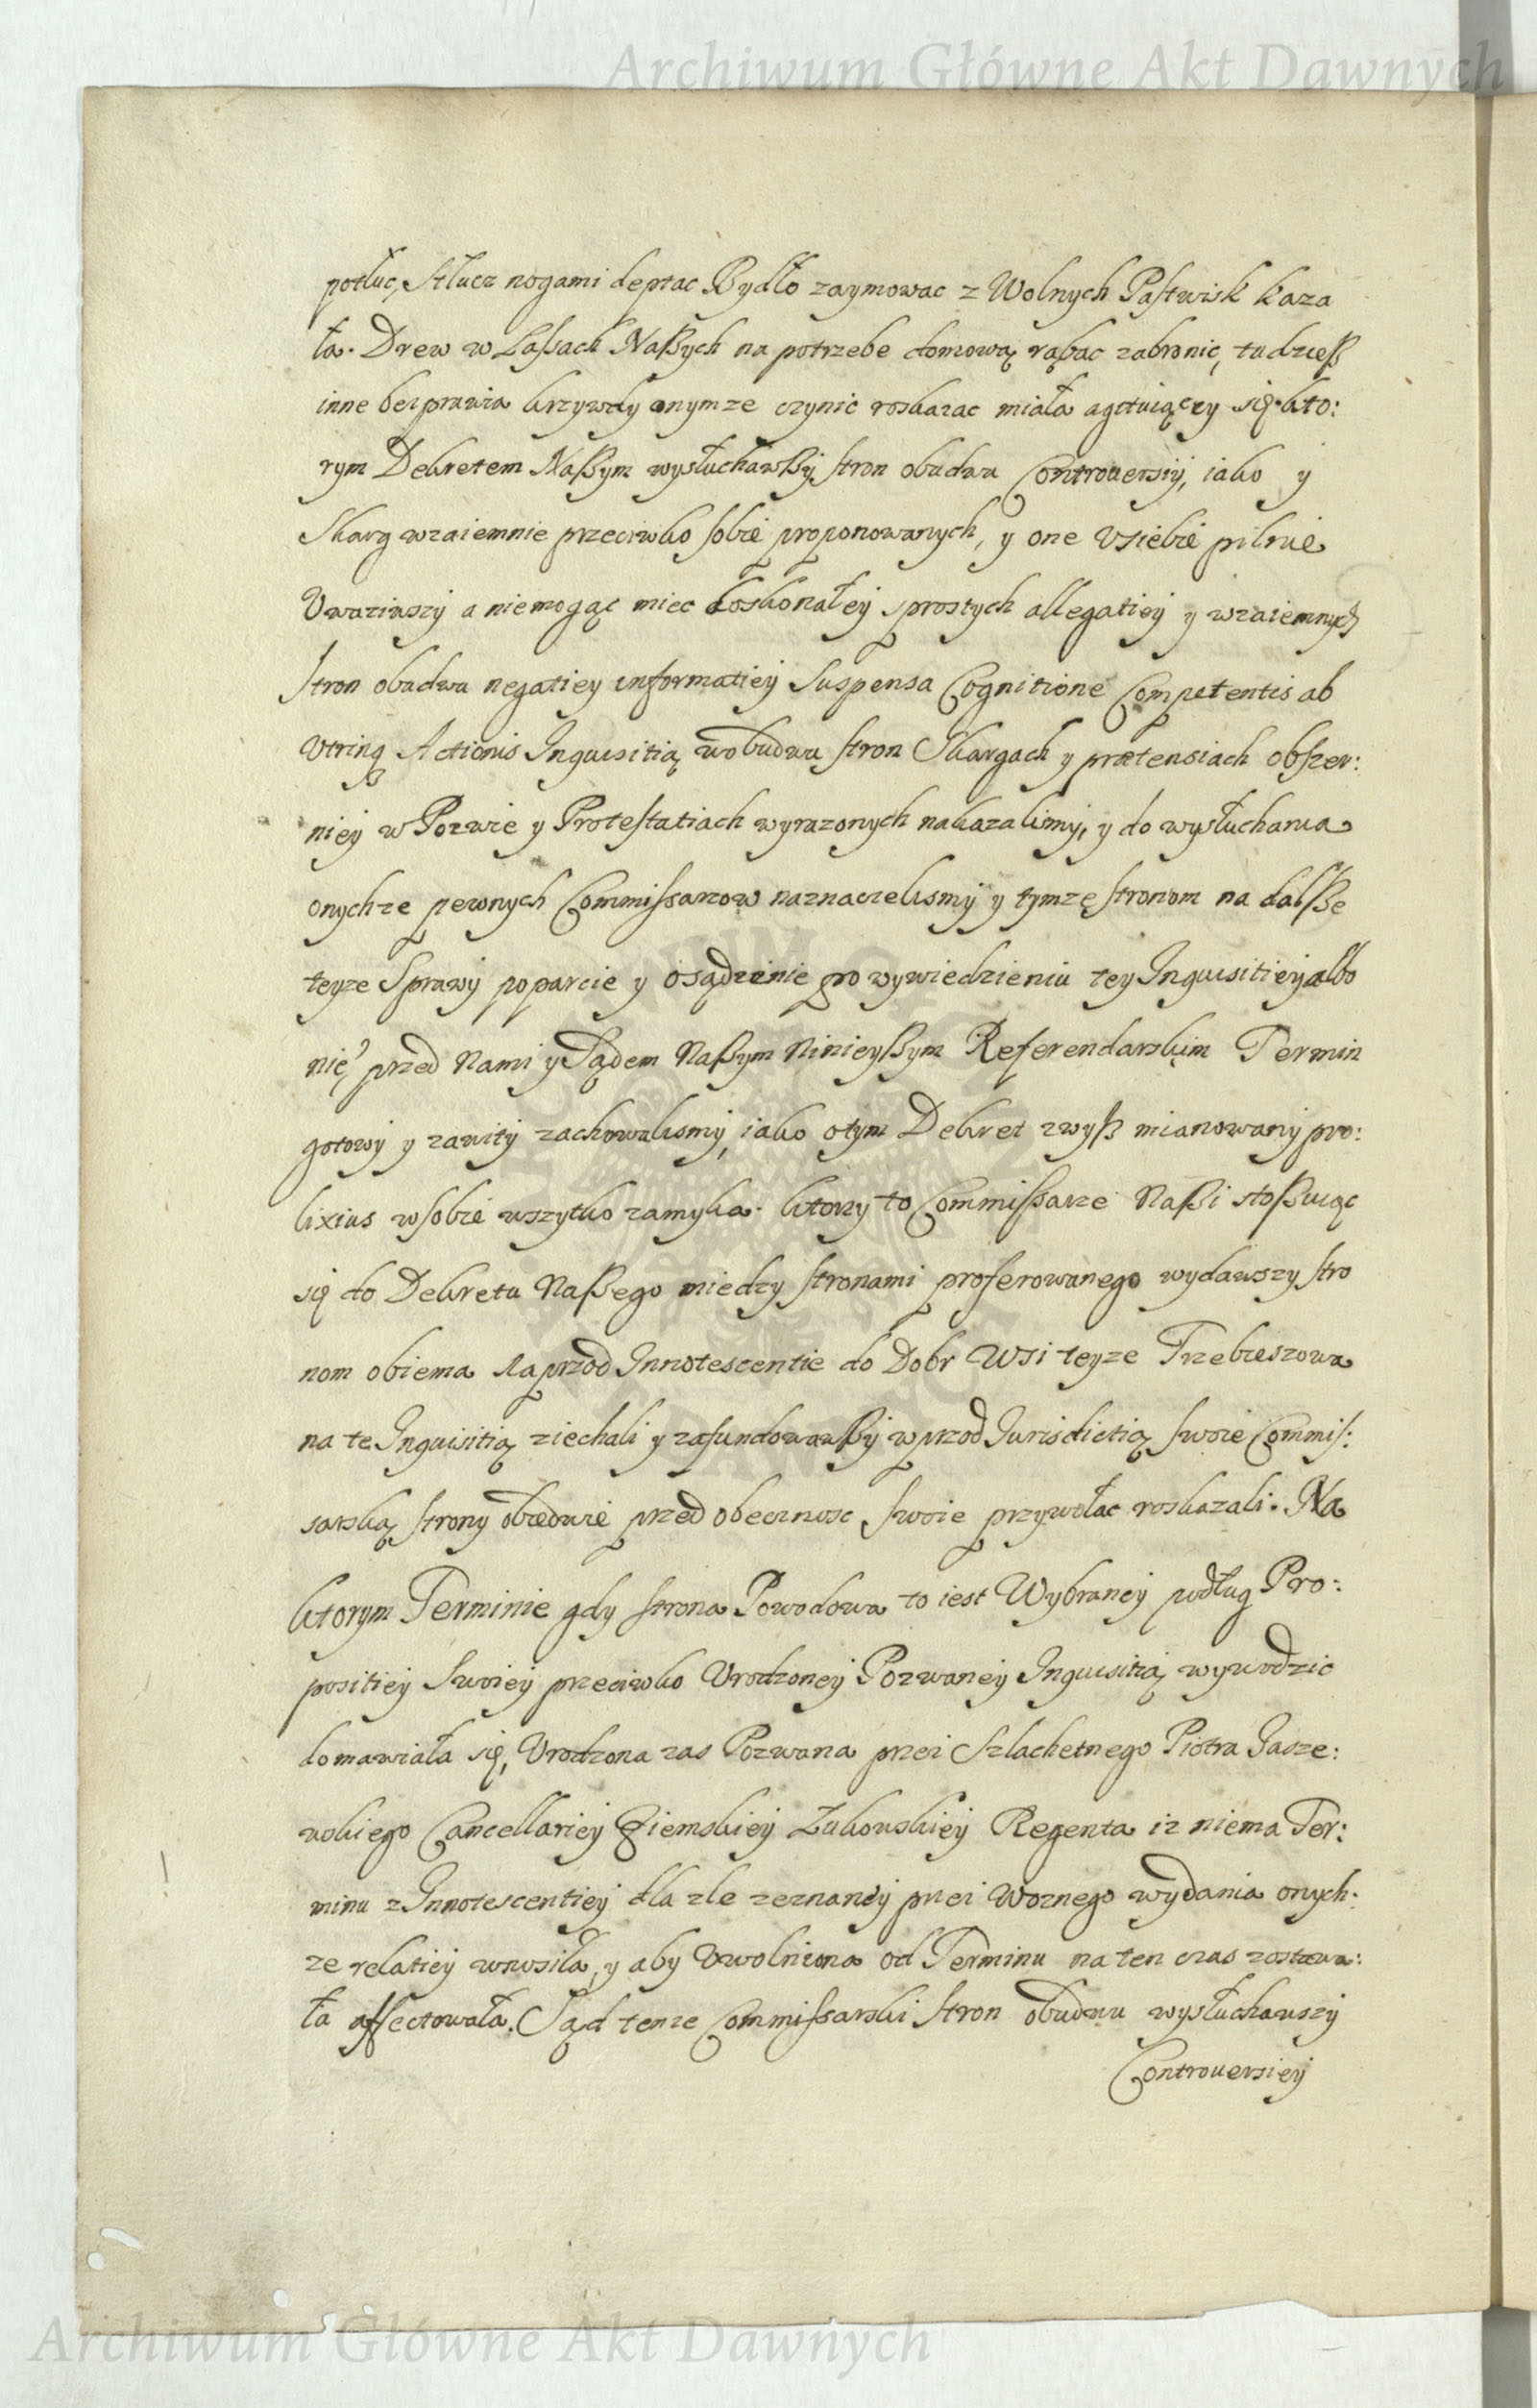 Archiwum Główne Akt Dawnych
potłuc, stłucz nogami deptac Bydło zaymowac z Wolnych Pastwisk kaza
ła. Drew w Lassach Naßych na potrzebe domową rąbac zabronić, tudzieß
inne bezprawia krzywdy onymze czynić roskazac miała agituiączy się. kto:
rym Dekretem Naßym wysłuchawßy stron obudwu Controuersiy, iako y
Skarg wzaiemnie przeciwko sobie proponowanych, y one Usiebie pilnie
Uwaziwszy a niemogąc miec doskonałey sprostych allegatiey y wzaiemnych
stron obudwu negatiey informatiey Suspensa Cognitione Competentis ab
Utrinq Actionis Inquisitią wobudwu stron Skargach y prætensiach obszer:
niey w Pozwie y Protestatiach wyrazonych nakazalismy, y do wysłuchania
onychze pewnych Commissarzow naznaczelismy y tymze stronom na dalsße
teyze Sprawy poparcie y osądzenie po wywiedzieniu tey Inquisitiey albo
nie, przed Nami y Sądem Naßym Ninieyßym Referendarskim Termin
gotowy y zawity zachowalismy, iako otym Dekret zwyß mianowany pro:
lixius wsobie wszytko zamyka. ktorzy to Commissarze Naßi stoßuiąc
się do Dekretu Naßego miedzy stronami proferowanego wydawszy stro
nom obiema Naprzod Innotescentie do Dobr Wsi teyze Trzebieszowa
na te Inquisitią ziechali y zafundowawßy wprzod Iurisdictią swoie Commis:
sarską strony obiedwie przed obecznosc swoie przywołac roskazali. Na
ktorym Terminie gdy strona Powodowa to iest Wybrancy podług Pro:
positiey Swoiey przeciwko Urodzoney Pozwaney Inquisitią wywodzic
domawiała się, Urodzona zas Pozwana przez Szlachetnego Piotra Jasze:
wskiego Cancellariey Ziemskiey Łukowskiey Regenta iz niema Ter:
minu z Innotescentiey dla zle zeznaney przez Woznego wydania onych:
ze relatiey wnosiła, y aby Uwolniona od Terminu na ten czas zostawa:
ła affectowała. Sąd tenze Commissarski stron obudwu wysłuchawszy
Controuersiey
Archiwum Główne Akt Dawnych